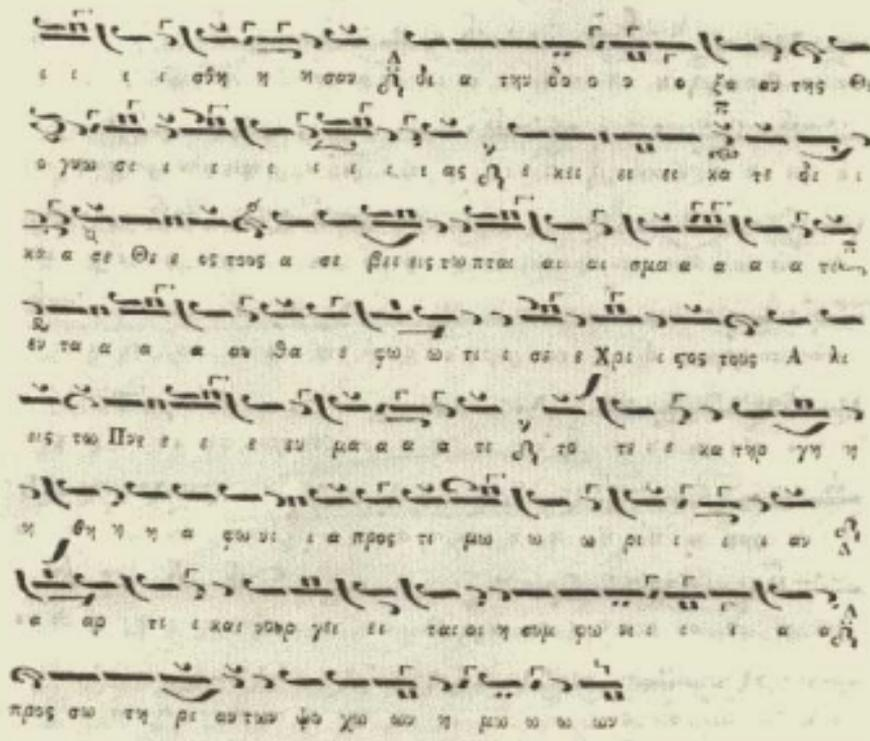 ι ι ι ι σθη η η σαν δι α την δο ο ο ο ο ξα αυ της Θε
ο γνω σι ι ι ι ι ι ι ι ας ε κει ει ει κα τε δι ι
κα α σε Θε ε ος τους α σε βει εις τω πται αι αι σμα α α α α τι
εν τα α α α αυ θα ε φω ω τι ι σε ε Χρι ι ςος τους Α λι
εις τω Πνε ε ι ε ε ευ μα α α α τι το τε ε κα τηρ γη η
η θη η η α φω νι ι α προς τι μω ω ω ω ρι ι ι ι ι αν
α αρ τι ι και νουρ γει ει ται οι η συμ φω νι ι ι ι ι α α
προς σω τη ρι αν των ψυ χω ων η μω ω ω ων